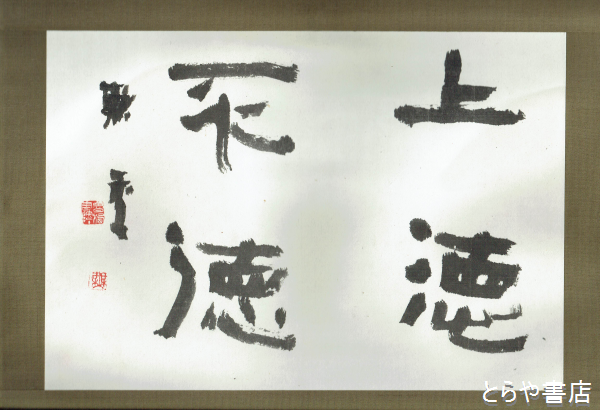 上徳
不徳
とらや書店